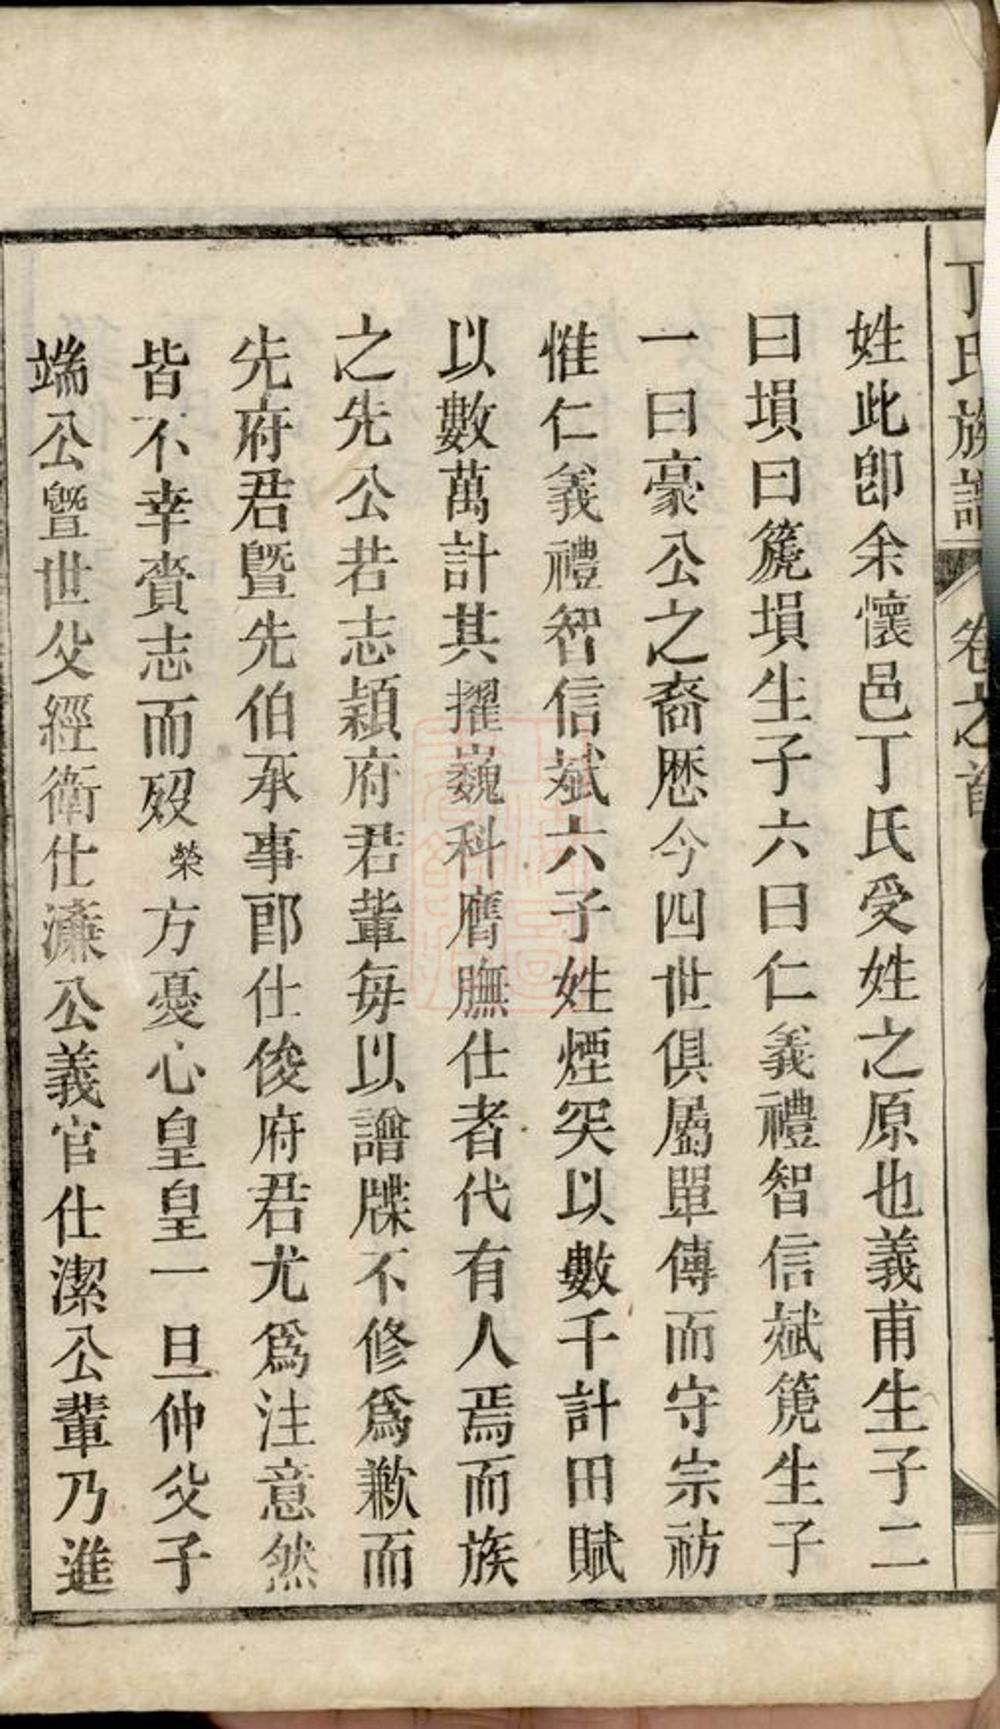 丁氏族譜 卷之首
姓此即余懷邑丁氏受姓之原也義甫生子二
曰塤曰篪塤生子六曰仁義禮智信斌篪生子
一曰豪公之裔歷今四世俱屬單傳而守宗祊
惟仁義禮智信斌六子姓煙突以數千計田賦
以數萬計其擢巍科膺膴仕者代有人焉而族
之先公若志穎府君輩每以譜牒不修爲歉而
先府君暨先伯承事郎仕俊府君尤爲注意然
皆不幸賫志而歿榮方憂心皇皇一旦仲父子
端公暨世父經衛仕濂公義官仕潔公輩乃進